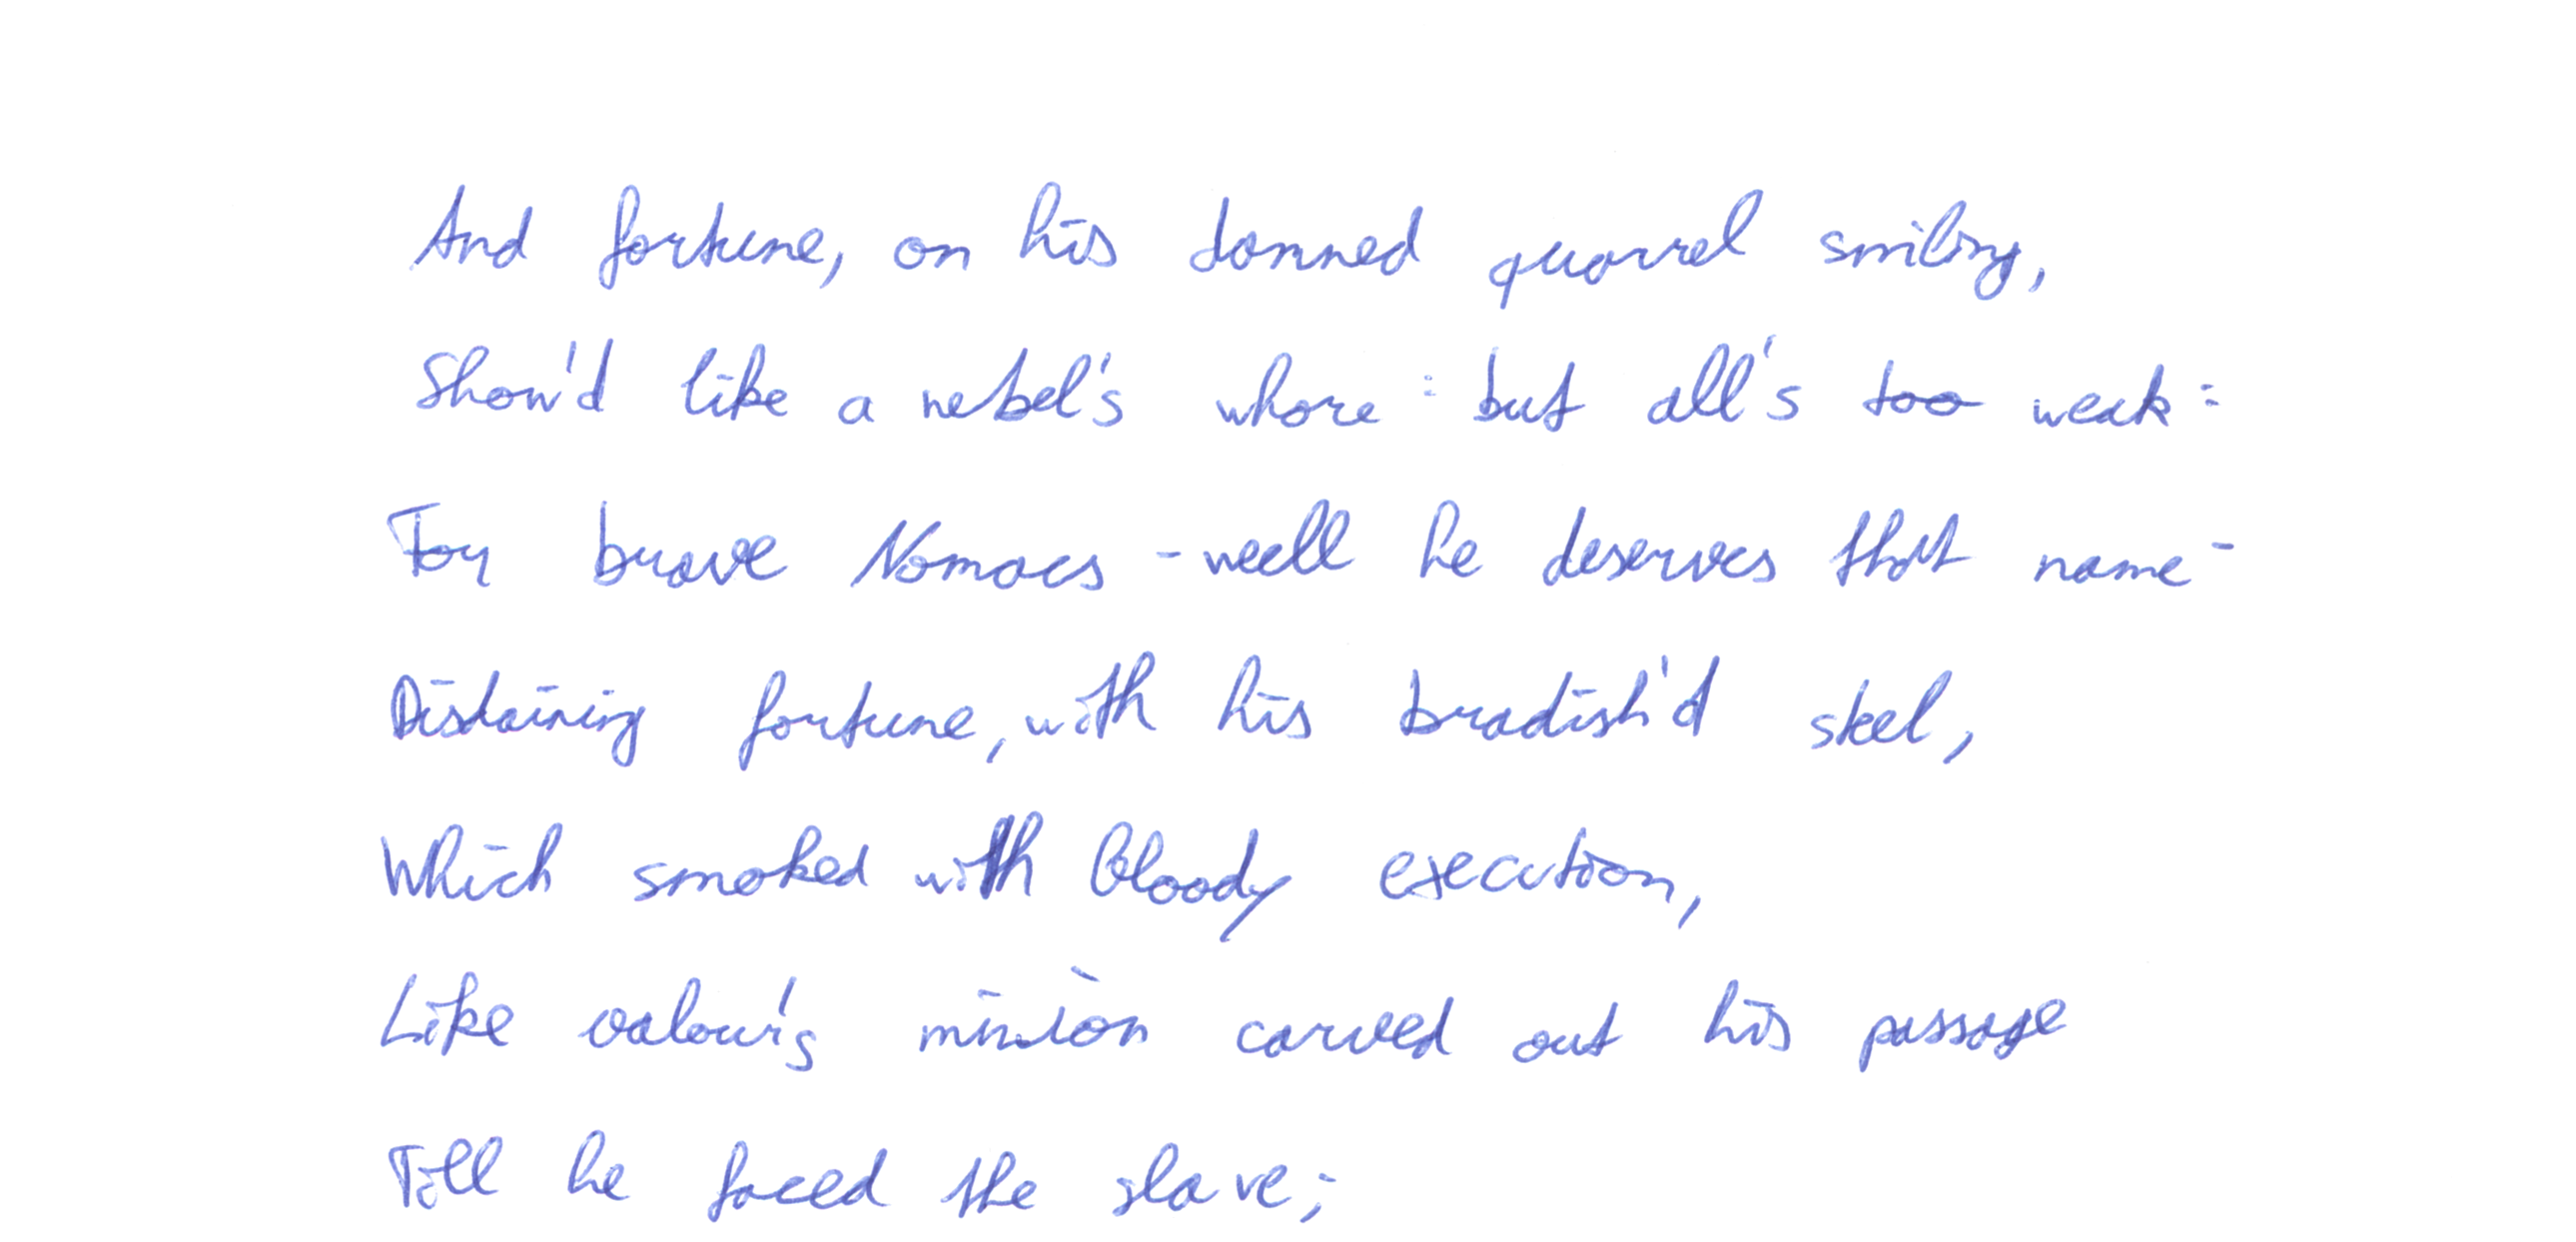 And fortune, on his damned quarrel smiling,
Show'd like a rebel's whore : but all's too weak :
For brave Nomacs - well he deserves that name -
Disdaining fortune, with his bradish'd steel,
Which smoked with bloody execution,
Like valour's minion carved out his passage
Till he faced the slave ;